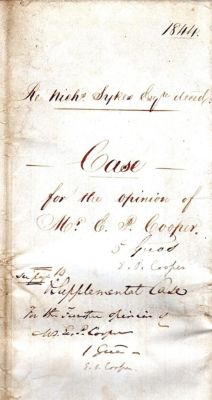 1844.
Re Nichs Sykes Esqre decd.
Case
for the opinion of
Mr. C. P. Cooper.
5 Guas
C. P. Cooper
Supplemental Case
for the Further opinion of
Mr. C. P. Cooper
1 Gua
C. P. Cooper